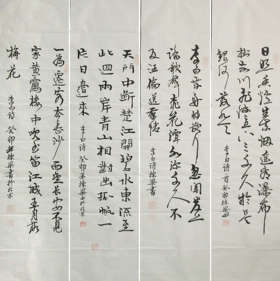 日照香炉生紫烟遥看瀑布
挂前川飞流直下三千尺疑是
银河落九天 李白诗
李白乘舟将欲行忽闻岸上
踏歌声桃花潭水深千尺不
及汪伦送我情
天門中断楚江開碧水东流至
此回两岸青山相對出孤帆一
片日邊来 李白诗 癸卯
一為遷客去長沙西望長安不見
家黄鶴樓中吹玉笛江城五月落
梅花 李白诗 癸卯